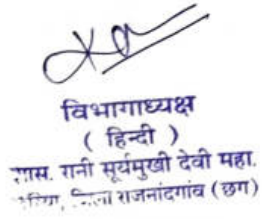 विभागाध्यक्ष
( हिन्दी )
शास. रानी सूर्यमुखी देवी महा.
जिला राजनांदगांव (छग)